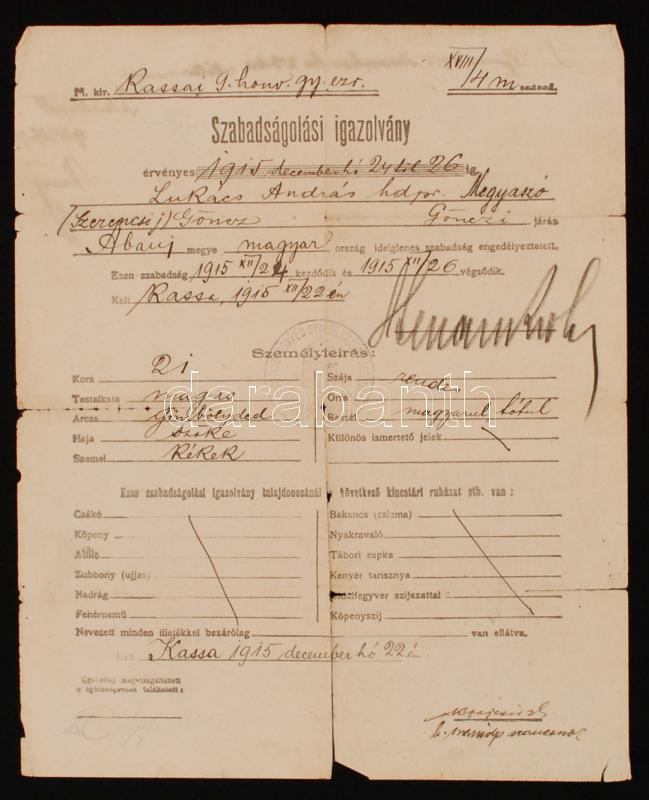 M. kir. Kassai 9. honv. gy. ezr. XVIII/4 m század.
Szabadságolási igazolvány
érvényes 1915 december hó 24 től 26 ig.
Lukács András hdpc. Megyaszó
(Szerencsi j) Göncz Gönczi járás
Abauj megye magyar ország ideiglenes szabadság engedélyeztetett.
Ezen szabadság 1915 XII/24 kezdődik és 1915 XII/26 végződik.
Kelt Kassa, 1915 XII/22 én
Személyleirás:
Kora 21
Testalkata magas
Arcza gömbölyded
Haja szőke
Szemei kékek
Szája rendz.
Orra
Beszél magyarul tótul
Különös ismertető jelek
darabanth
Ezen szabadságolási igazolvány tulajdonosánál a következő kincstári ruházat stb. van:
Csákó
Köpeny
Atilla
Zubbony (ujjas)
Nadrág
Fehérnemű
Bakancs (csizma)
Nyakravaló
Tábori sapka
Kenyér tarisznya
Oldalfegyver szijazattal
Köpenyszij
Nevezett minden illetékkel bezárólag van ellátva.
Kelt Kassa 1915 december hó 22 én.
Orvosilag megvizsgáltatott
s egészségesnek találtatott: